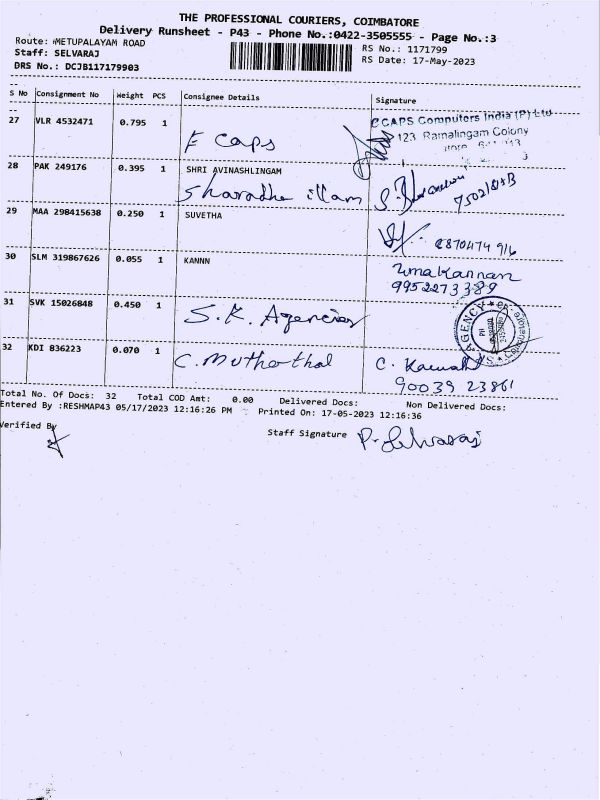 THE PROFESSIONAL COURIERS, COIMBATORE
Delivery Runsheet - P43 - Phone No.:0422-3505555 - Page No.:3
Route: METUPALAYAM ROAD
RS No.: 1171799
Staff: SELVARAJ
RS Date: 17-May-2023
DRS No.: DCJB117179903
S No Consignment No Weight PCS Consignee Details Signature
27 VLR 4532471 0.795 1 E caps
CAPS Computers India (P) Ltd
123, Ramalingam Colony
28 PAK 249176 0.395 1 SHRI AVINASHLINGAM
Sharadha illam
29 MAA 298415638 0.250 1 SUVETHA
30 SLM 319867626 0.055 1 KANNN
Uma Kannan
9952273389
31 SVK 15026848 0.450 1 S.K. Agencies
AGENCY
32 KDI 836223 0.070 1 C.
C.
90039 23861
Total No. Of Docs: 32 Total COD Amt: 0.00 Delivered Docs: Non Delivered Docs:
Entered By :RESHMAP43 05/17/2023 12:16:26 PM Printed On: 17-05-2023 12:16:36
Verified By
Staff Signature P. Selvaraj